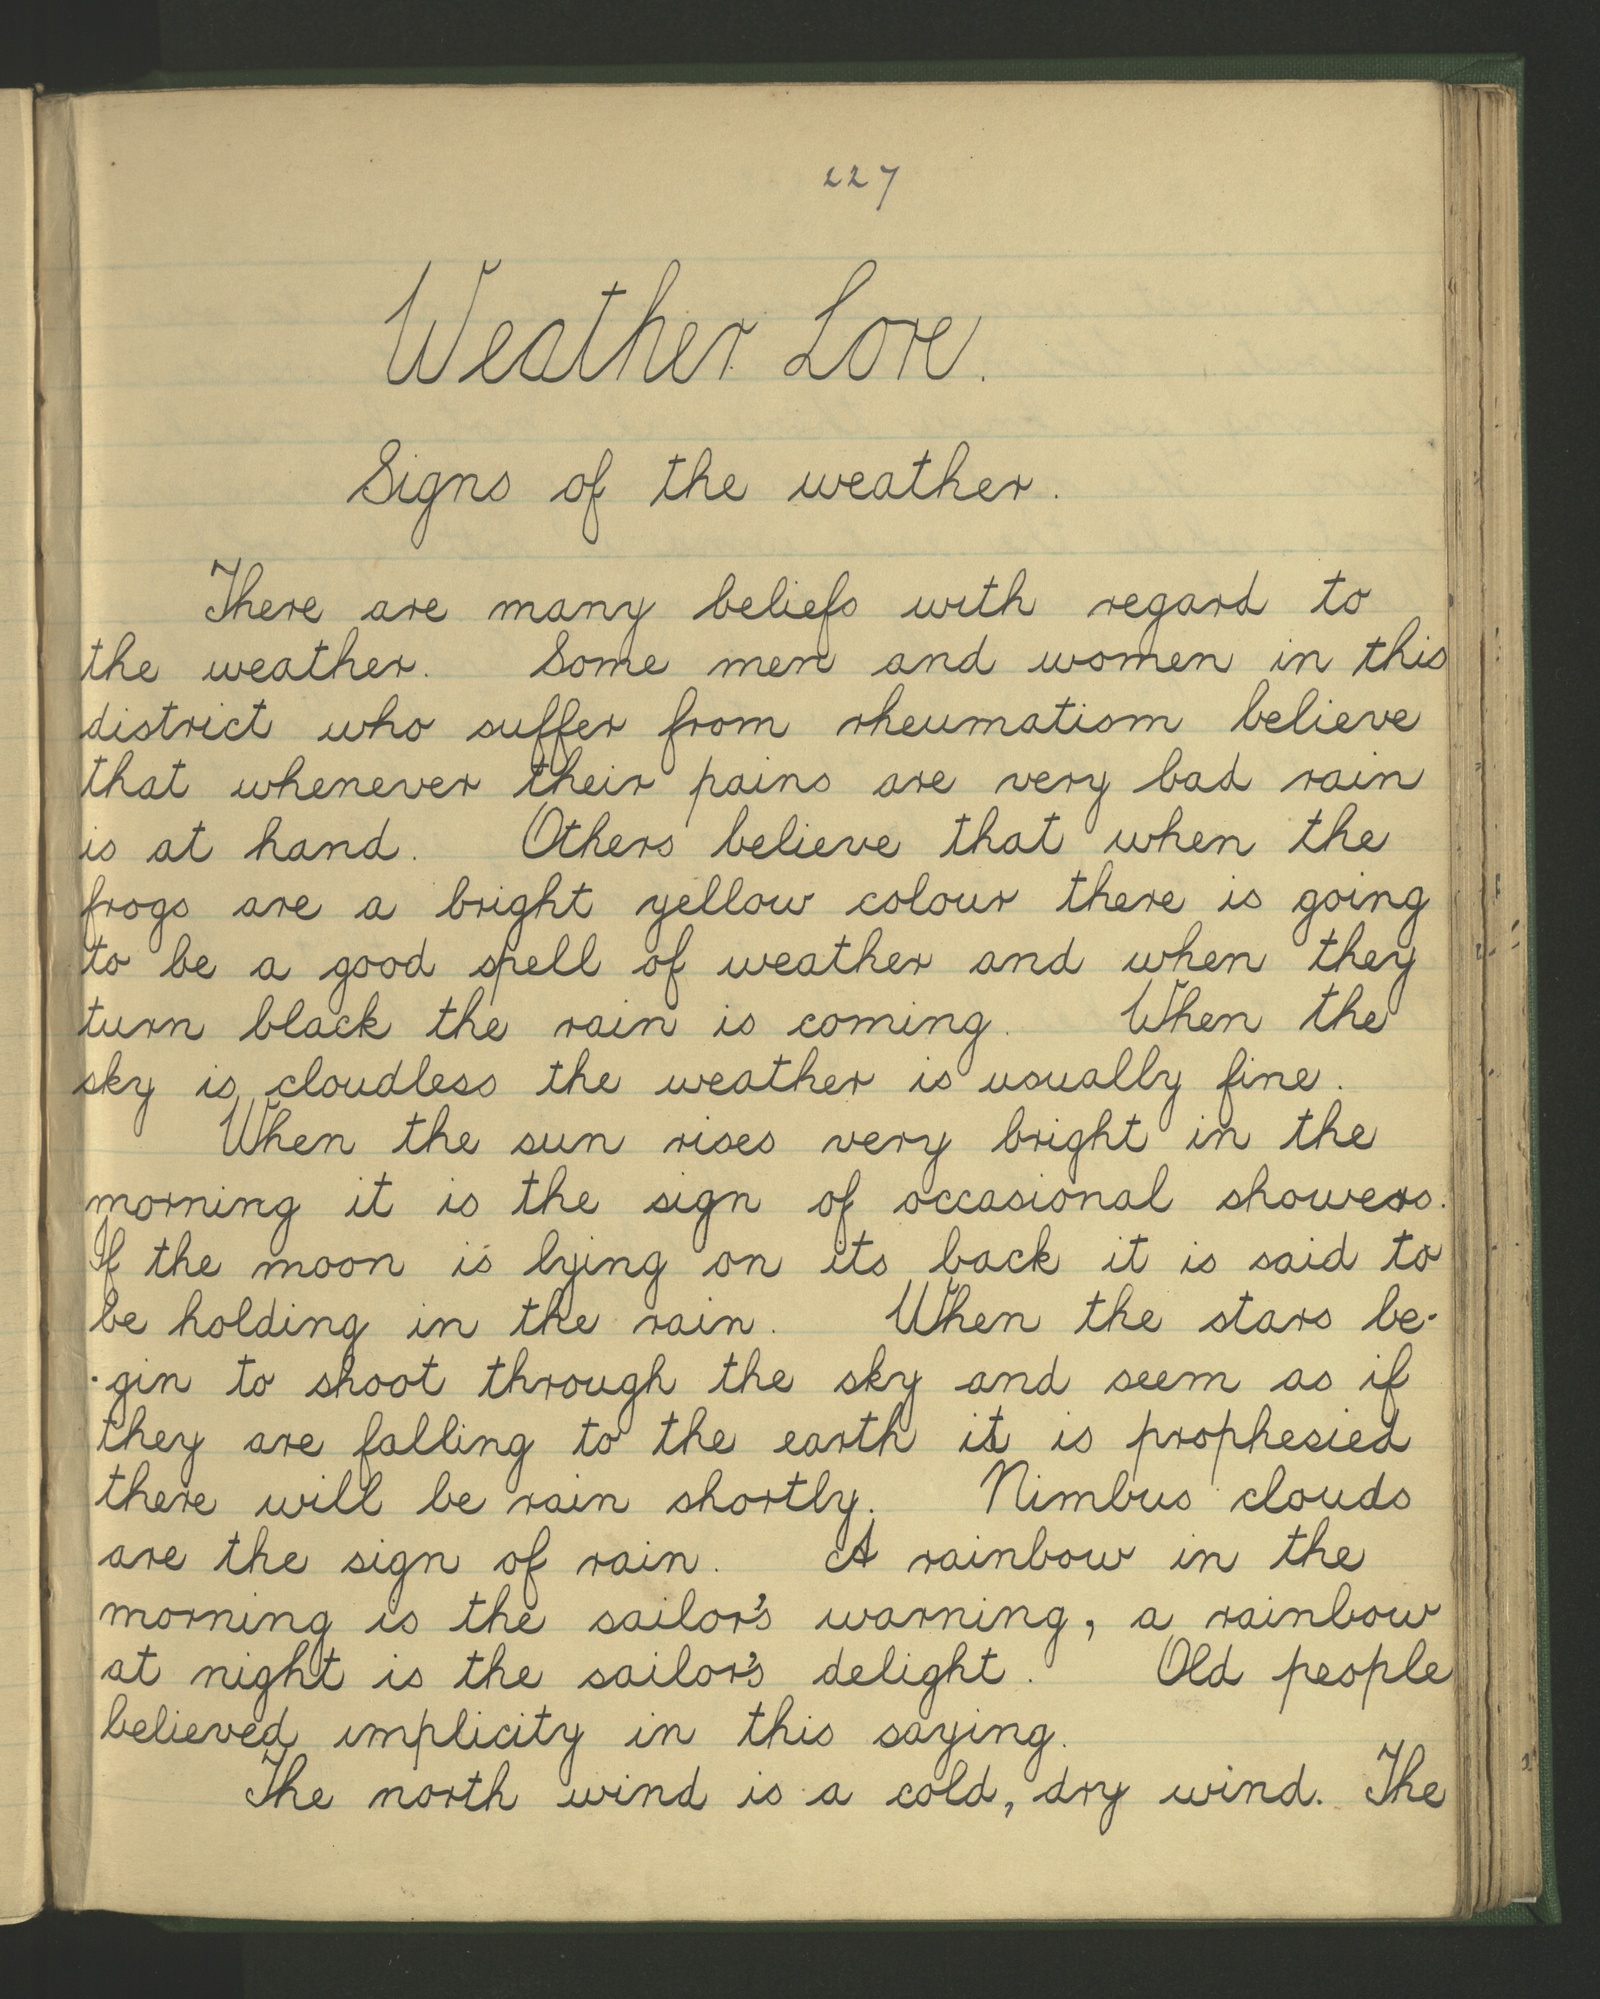 227
Weather Lore.
Signs of the weather.
There are many beliefs with regard to
the weather. Some men and women in this
district who suffer from rheumatism believe
that whenever their pains are very bad rain
is at hand. Others believe that when the
frogs are a bright yellow colour there is going
to be a good spell of weather and when they
turn black the rain is coming. When the
sky is cloudless the weather is usually fine.
When the sun rises very bright in the
morning it is the sign of occasional showers.
If the moon is lying on its back it is said to
be holding in the rain. When the stars be-
-gin to shoot through the sky and seem as if
they are falling to the earth it is prophesied
there will be rain shortly. Nimbus clouds
are the sign of rain. A rainbow in the
morning is the sailor's warning, a rainbow
at night is the sailor's delight. Old people
believed implicity in this saying.
The north wind is a cold, dry wind. The